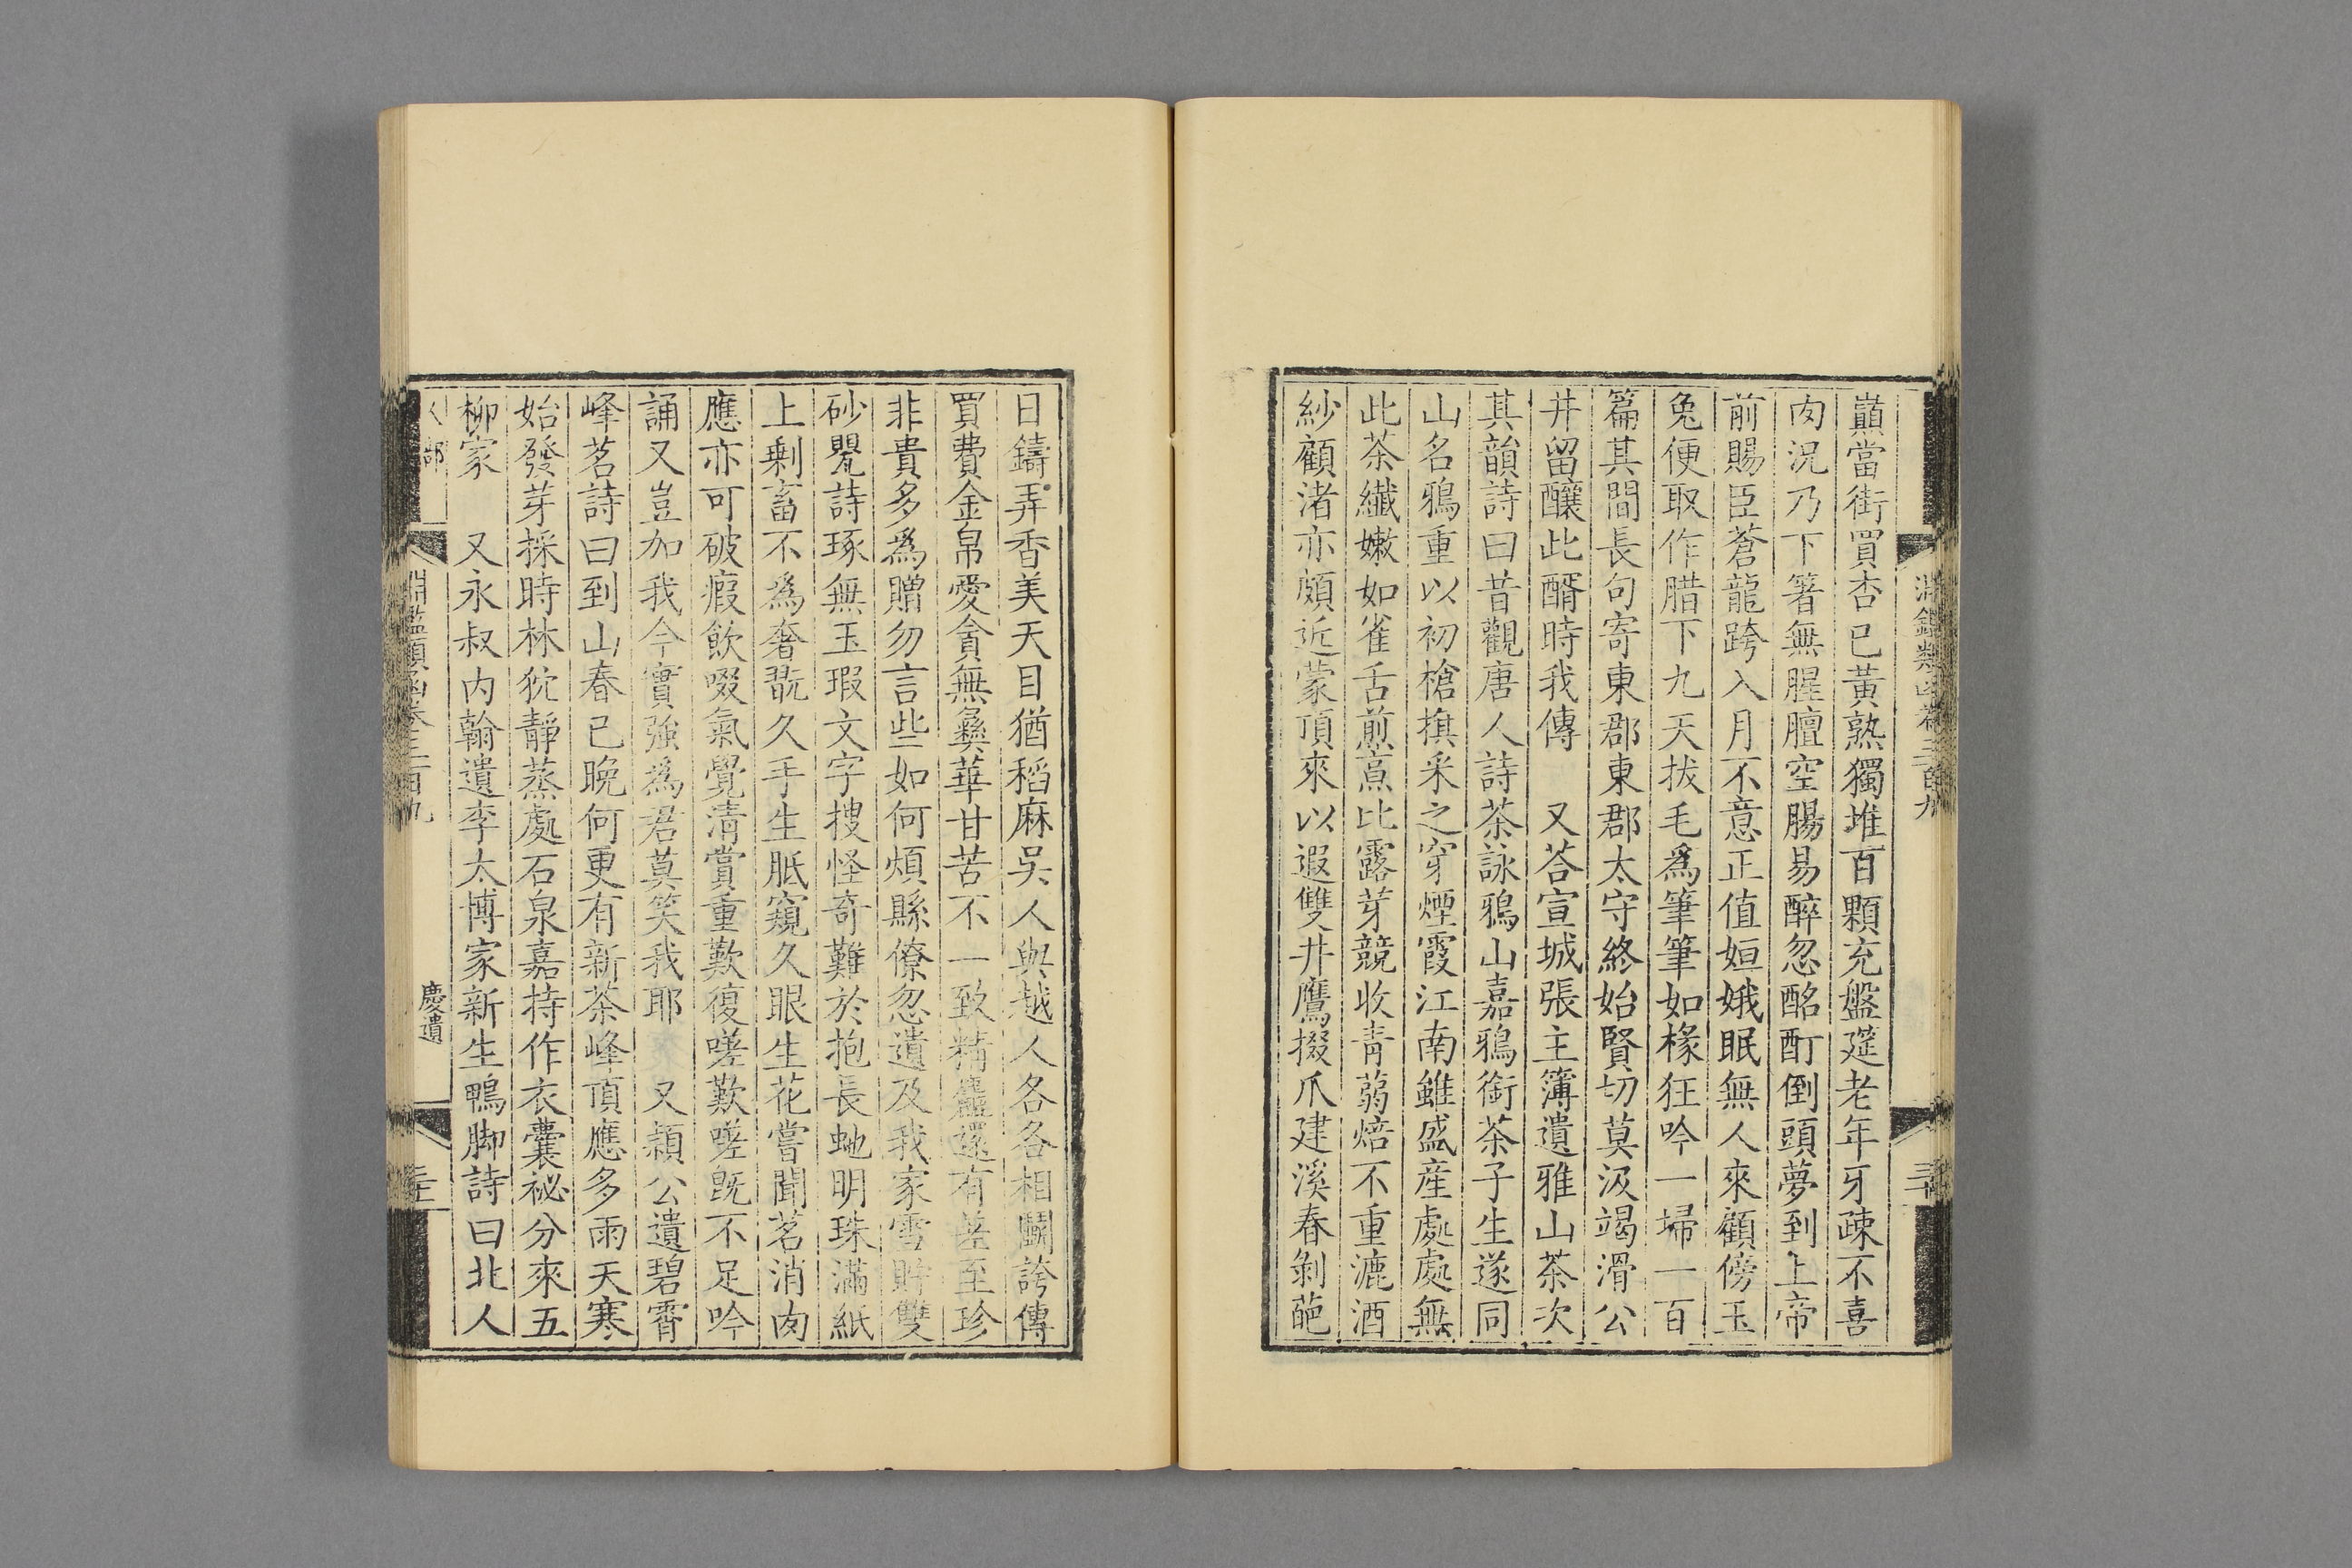 巔當街買杏已黃熟獨堆百顆充盤筵老年牙疎不喜
肉況乃下箸無腥膻空腸易醉忽酩酊倒頭夢到上帝
前賜臣蒼龍跨入月不意正值姮娥眠無人來顧傍玉
兔便取作腊下九天拔毛爲筆筆如椽狂吟一埽一百
篇其間長句寄東郡東郡太守終始賢切莫汲竭滑公
井留釀此醑時我傳　又荅宣城張主簿遺雅山茶次
其韻詩曰昔觀唐人詩茶詠鴉山嘉鴉銜茶子生遂同
山名鴉重以初槍旗采之穿煙霞江南雖盛産處處無
此茶纖嫩如雀舌煎烹比露芽競收青蒻焙不重漉酒
紗顧渚亦頗近蒙頂來以遐雙井鷹掇爪建溪春剝葩
日鑄弄香美天目猶稻麻吳人與越人各各相鬭誇傳
買費金帛愛貪無彞華甘苦不一致精麤還有差至珍
非貴多爲贈勿言些如何煩縣僚忽遺及我家雪貯雙
砂罌詩琢無玉瑕文字搜怪奇難於抱長虵明珠滿紙
上剩畜不爲奢翫久手生胝窺久眼生花嘗聞茗消肉
應亦可破瘕飲啜氣覺清賞重歎復嗟歎嗟旣不足吟
誦又豈加我今實強爲君莫笑我耶　又潁公遺碧霄
峰茗詩曰到山春已晚何更有新茶峰頂應多雨天寒
始發芽採時林狖靜蒸處石泉嘉持作衣囊祕分來五
柳家　又永叔内翰遺李太博家新生鴨脚詩曰北人
人部
淵鑑類函卷三百九
慶遺